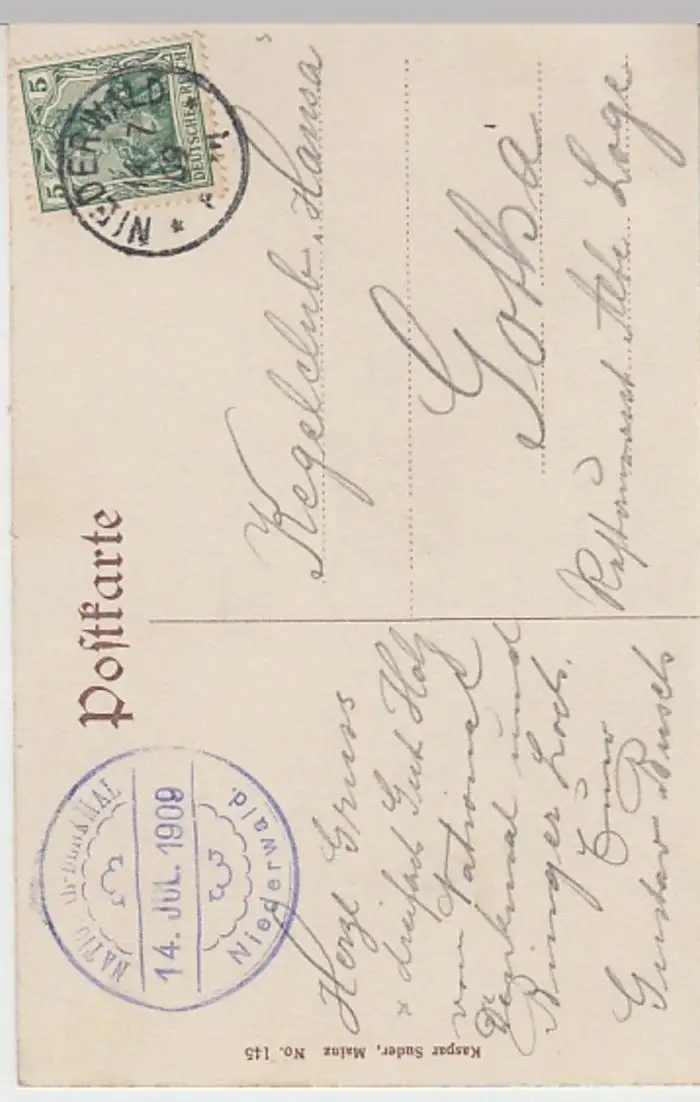 Postkarte
5 5
DEUTSCHES REICH
NIEDERWALD
14 7
09
NATIONALDENKMAL
14. JUL. 1909
Niederwald.
Herzl Gruss
x dreifach Gut Holz
vom National
Denkmal und
Binger Loch.
Euer
Gustav Busch
Kegelclub. Hansa
Gotha
Restaurant Alte Loge
Kaspar Suder, Mainz No. 145